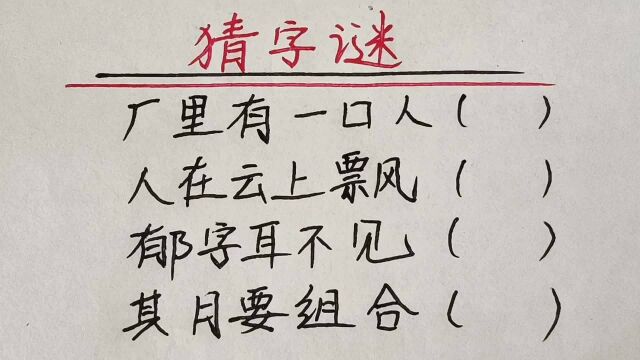 猜字谜
厂里有一口人（ ）
人在云上票风（ ）
郁字耳不见（ ）
其月要组合（ ）